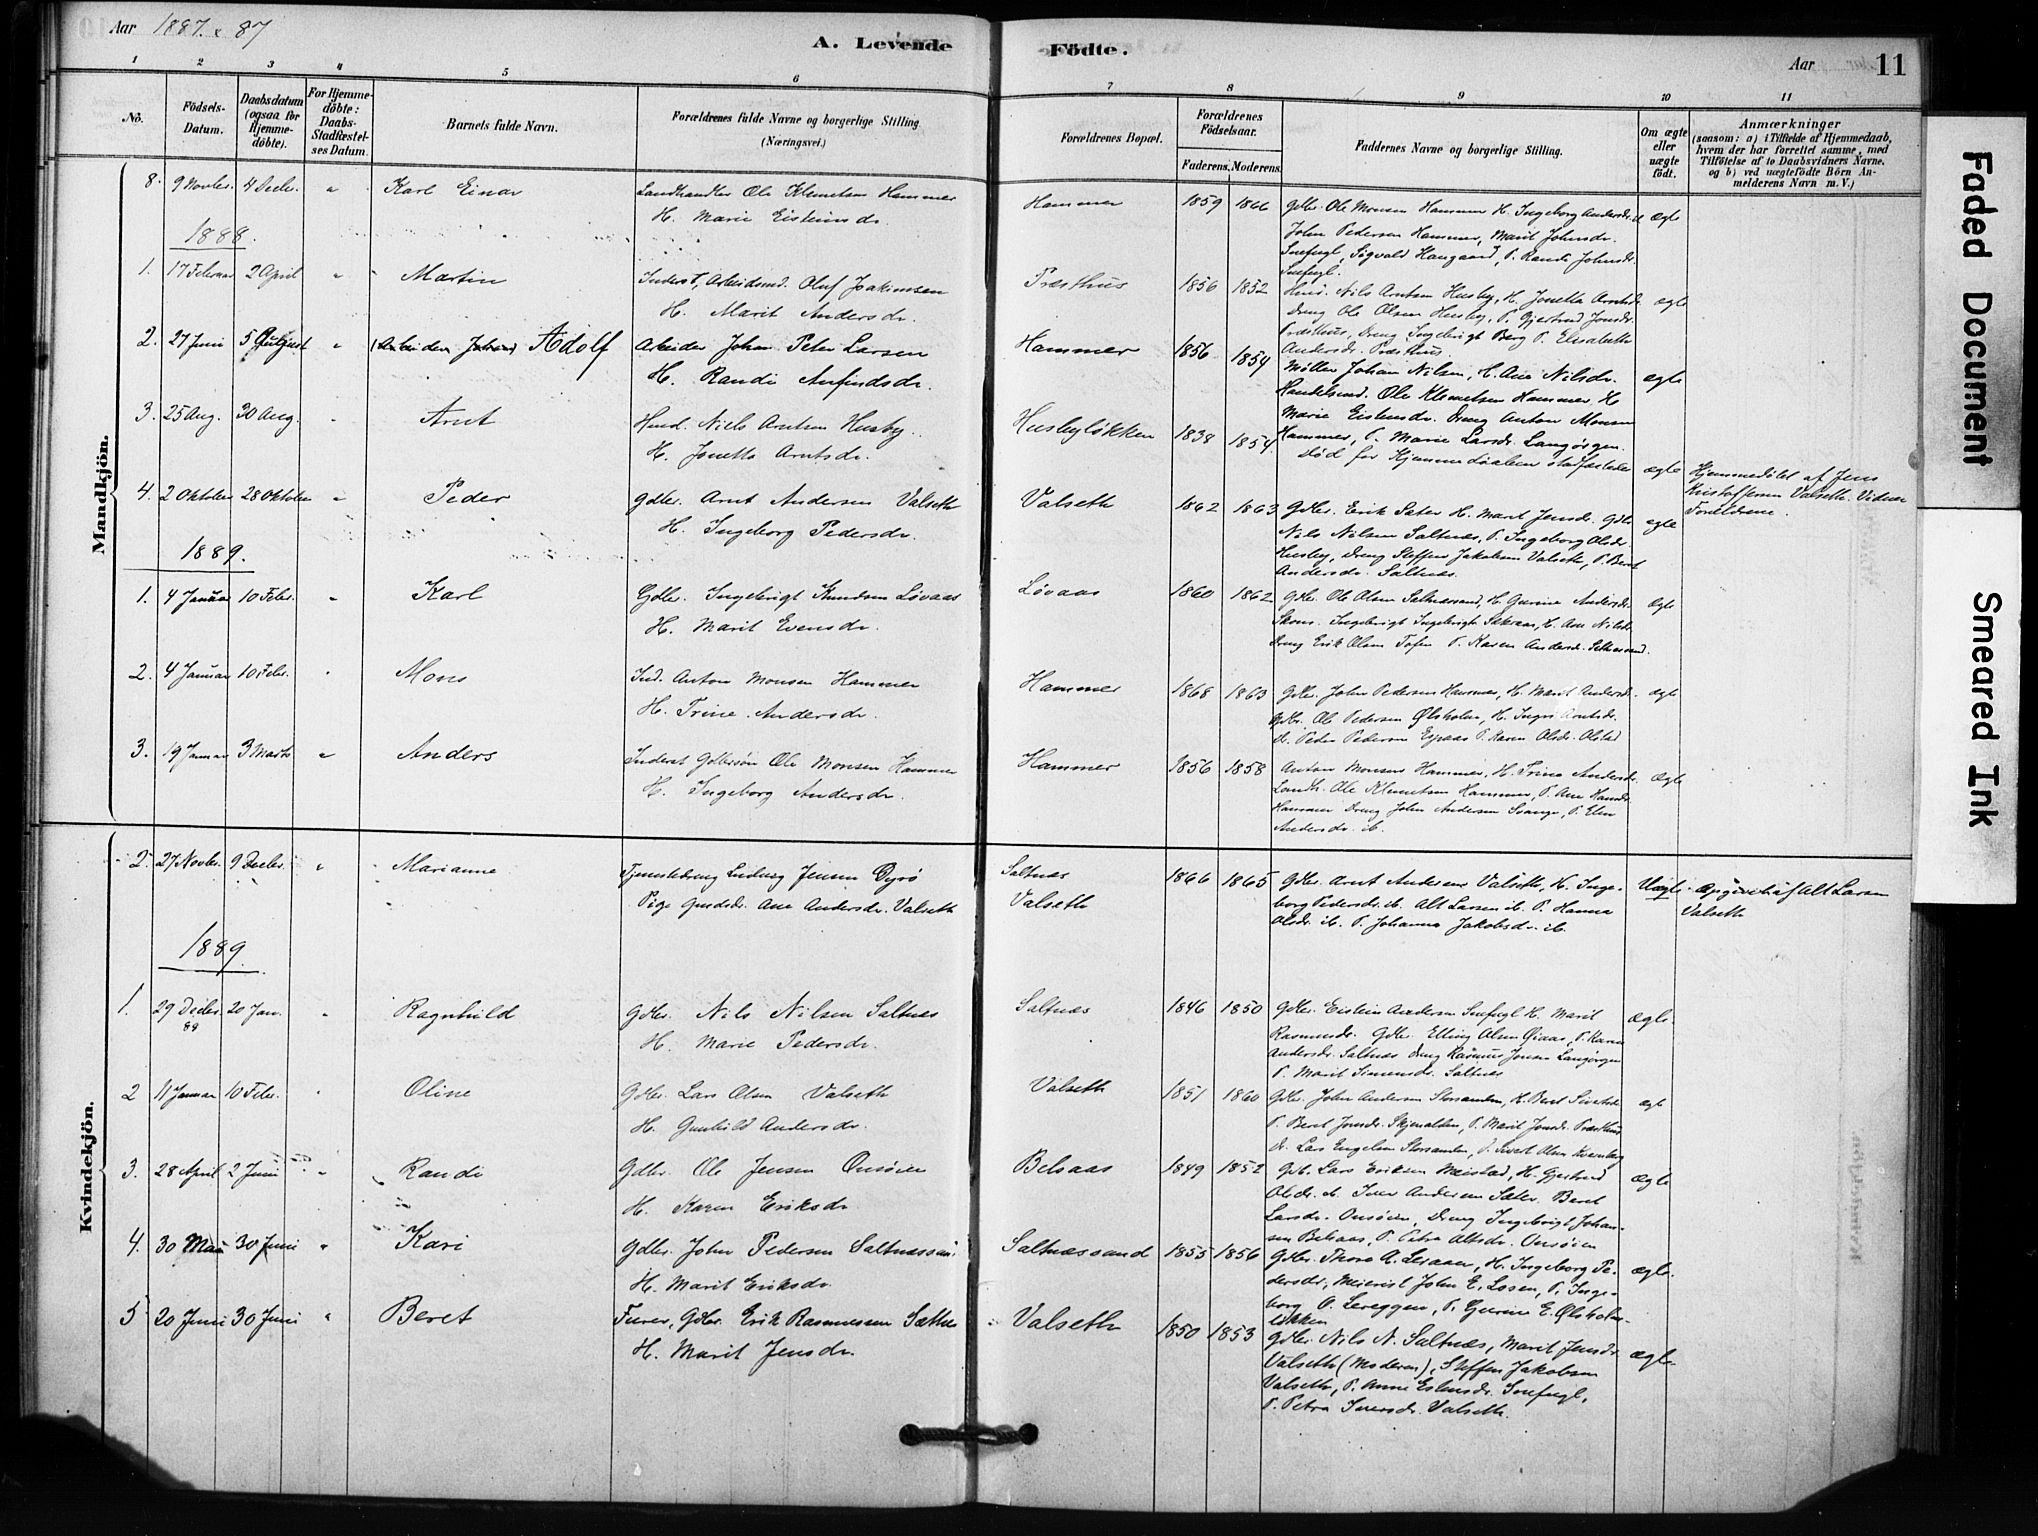 Aar 1887. & 87
A. Levende Födte.
Aar 11
1 2 3 4 5 6 7 8 9 10 11
No.
Födsels-Datum.
Daabsdatum (ogsaa for Hjemme-döbte).
For Hjemme-döbte: Daabs-Stadfæstel-ses Datum.
Barnets fulde Navn.
Forældrenes fulde Navne og borgerlige Stilling (Næringsvei.)
Forældrenes Bopæl.
Forældrenes Födselsaar.
Faderens. Moderens.
Faddernes Navne og borgerlige Stilling.
Om ægte eller uægte födt.
Anmærkninger
(saasom: a) i Tilfælde af Hjemmedaab,
hvem der har forrettet samme, med
Tilföielse af to Daabsvidners Navne,
og b) ved uægtefödte Börn An-
melderens Navn m. V.)
Mandkjön.
8. 9 Novbr. 4 Decbr. " Karl Einar
Landhandler Ole Klemetsen Hammer
H. Marie Eistensdr.
Hammer 1859 1866
Gdbr. Ole Monsen Hammer H. Ingeborg Andersdr.
John Pedersen Hammer, Marit Johnsdr.
Snefugl, Sigvald Haugaard, P. Randi Johnsdr.
Snefugl.
ægte
1888.
1. 17 Februar 2 April " Martin
Inderst, Arbeidsmd. Oluf Joakimsen
H. Marit Andersdr.
Præsthus 1856 1852
Husd. Nils Arntsen Husby, H. Jonetta Arntsdr.
Dreng Ole Olsen Husby, P. Gjertrud Jonsdr.
Præsthus, Dreng Ingebrigt Berg P. Elisabeth
Andersdr. Præsthus.
ægte
2. 27 Juni 5 August " Adolf
Arbeider Johan Peter Larsen
H. Randi Anfindsdr.
Hammer 1856 1854
Møller Johan Nilsen, H. Ane Nilsdr.
Handelsmd. Ole Klemetsen Hammer H.
Marie Eistensdr. Dreng Anton Monsen
Hammer, P. Marie Larsdr. Langørgen
ægte
3. 25 Aug. 30 Aug. Arnt
Husd. Niels Arntsen Husby.
H. Jonetta Arntsdr.
Husbyløkken 1838 1854.
Død før Hjemmedaaben stadfæstedes
ægte
Hjemmedöbt af Jens
Kristoffersen Valseth. Vidner
Forældrene.
4. 2 Oktober 28 Oktober " Peder
Gdbr. Arnt Andersen Valseth
H. Ingeborg Pedersdr.
Valseth 1862 1863
Gdbr. Erik Sæter H. Marit Jensdr. Gdbr.
Nils Nilsen Saltnæs, P. Ingeborg Olsdr.
Husby, Dreng Steffen Jakobsen Valseth, P. Beret
Andersdr. Saltnæs.
ægte
1889.
1. 4 Januar 10 Febr. " Karl
Gdbr. Ingebrigt Knudsen Løvaas
H. Marit Evensdr.
Løvaas 1860 1862
Gdbr. Ole Olsen Saltnæssand, H. Gurine Andersdr.
Dreng Erik Olsen P. Karen Andersdr. Saltnæssand.
ægte
2. 4 Januar 10 Febr. Mons
Ind. Anton Monsen Hammer
H. Trine Andersdr.
Hammer 1868 1863
Gdbr. John Pedersen Hammer, H. Marit Andersdr.
Gdbr. Ole Pedersen Ølsholm, H. Ingri Arntsdr.
D. Peder Pedersen Espaas P. Karen Olsdr. Olstad
ægte
3. 19 Januar 3 Marts " Anders
Inderst Gdbrsøn Ole Monsen Hammer
H. Ingeborg Andersdr.
Hammer 1856 1858
Anton Monsen Hammer, H. Trine Andersdr.
Landh. Ole Klemetsen Hammer, P. Ane Hansdr.
Hammer Dreng John Andersen Svange, P. Elen
Andersdr. ib.
ægte
Kvindekjön.
2. 27 Novbr. 9 Decbr. " Marianne
Tjenestedreng Ludvig Jensen Dyrø
Pige Gmdsdr. Ane Andersdr. Valseth
Saltnæs
Valseth
1866 1865
Gdbr. Arnt Andersen Valseth, H. Inge-
borg Pedersdr. ib. Alt Larsen ib. P. Hanna
Olsdr. ib. P. Johanna Jakobsdr. ib.
Uægte
Opgivet af Alt Larsen
Valseth
1889.
1. 29 Decbr. 88 20 Jan. " Ragnhild
Gdbr. Nils Nilsen Saltnæs
H. Marie Pedersdr.
Saltnæs 1846 1850
Gdbr. Eistein Andersen Snefugl H. Marit
Rasmusdr. Gdbr. Elling Olsen Øiaas, P. Karen
Andersdr. Saltnæs Dreng Rasmus Jonsen Langørgen
P. Marit Simensdr. Saltnæs
ægte.
2 11 Januar 10 Febr. Oline
Gdbr. Lars Olsen Valseth
H. Gunhild Andersdr.
Valseth 1851 1860
Gdbr. John Andersen Storsanden, H. Beret Sivertsdr.
P. Beret Jonsdr. Skjenalden, P. Marit Jonsdr. Præsthus
D. Lars Engelsen Storsanden, D. Sivert Olsen Kvernberg
ægt
3. 28 April 2 Juni " Randi
Gdbr. Ole Jensen Onsøien
H. Karen Eriksdr.
Belsaas 1849 1852
Gdb. Lars Eriksen Meistad, H. Gjertrud
Olsdr. ib. Iver Andersen Sæter. Beret
Larsdr. Onsøien, Dreng Ingebrigt Johan-
sen Belsaas, P. Petra Altsdr. Onsøien
ægte
4. 30 Mai 30 Juni " Kari
Gdbr. John Pedersen Saltnæssan.
H. Marit Eriksdr.
Saltnæssand 1855 1856
Gdbr. Thore A. Leraaen, H. Ingeborg Pe-
dersdr, Meierist John E. Losen, P. Inge-
borg O. Lereggen, P. Gurine E. Ølsholm-
løkken
ægte.
5 20 Juni 30 Juni " Beret
Gdbr. Erik Rasmussen Sæther
H. Marit Jensdr.
Valseth 1850 1853
Gdbr. Nils N. Saltnæs, Marit Jensdr.
Valseth (Moderen), Steffen Jakobsen
Valseth, P. Anne Estensdr. Snefugl,
P. Petra Iversdr. Valseth.
ægte
Faded Document
Smeared Ink